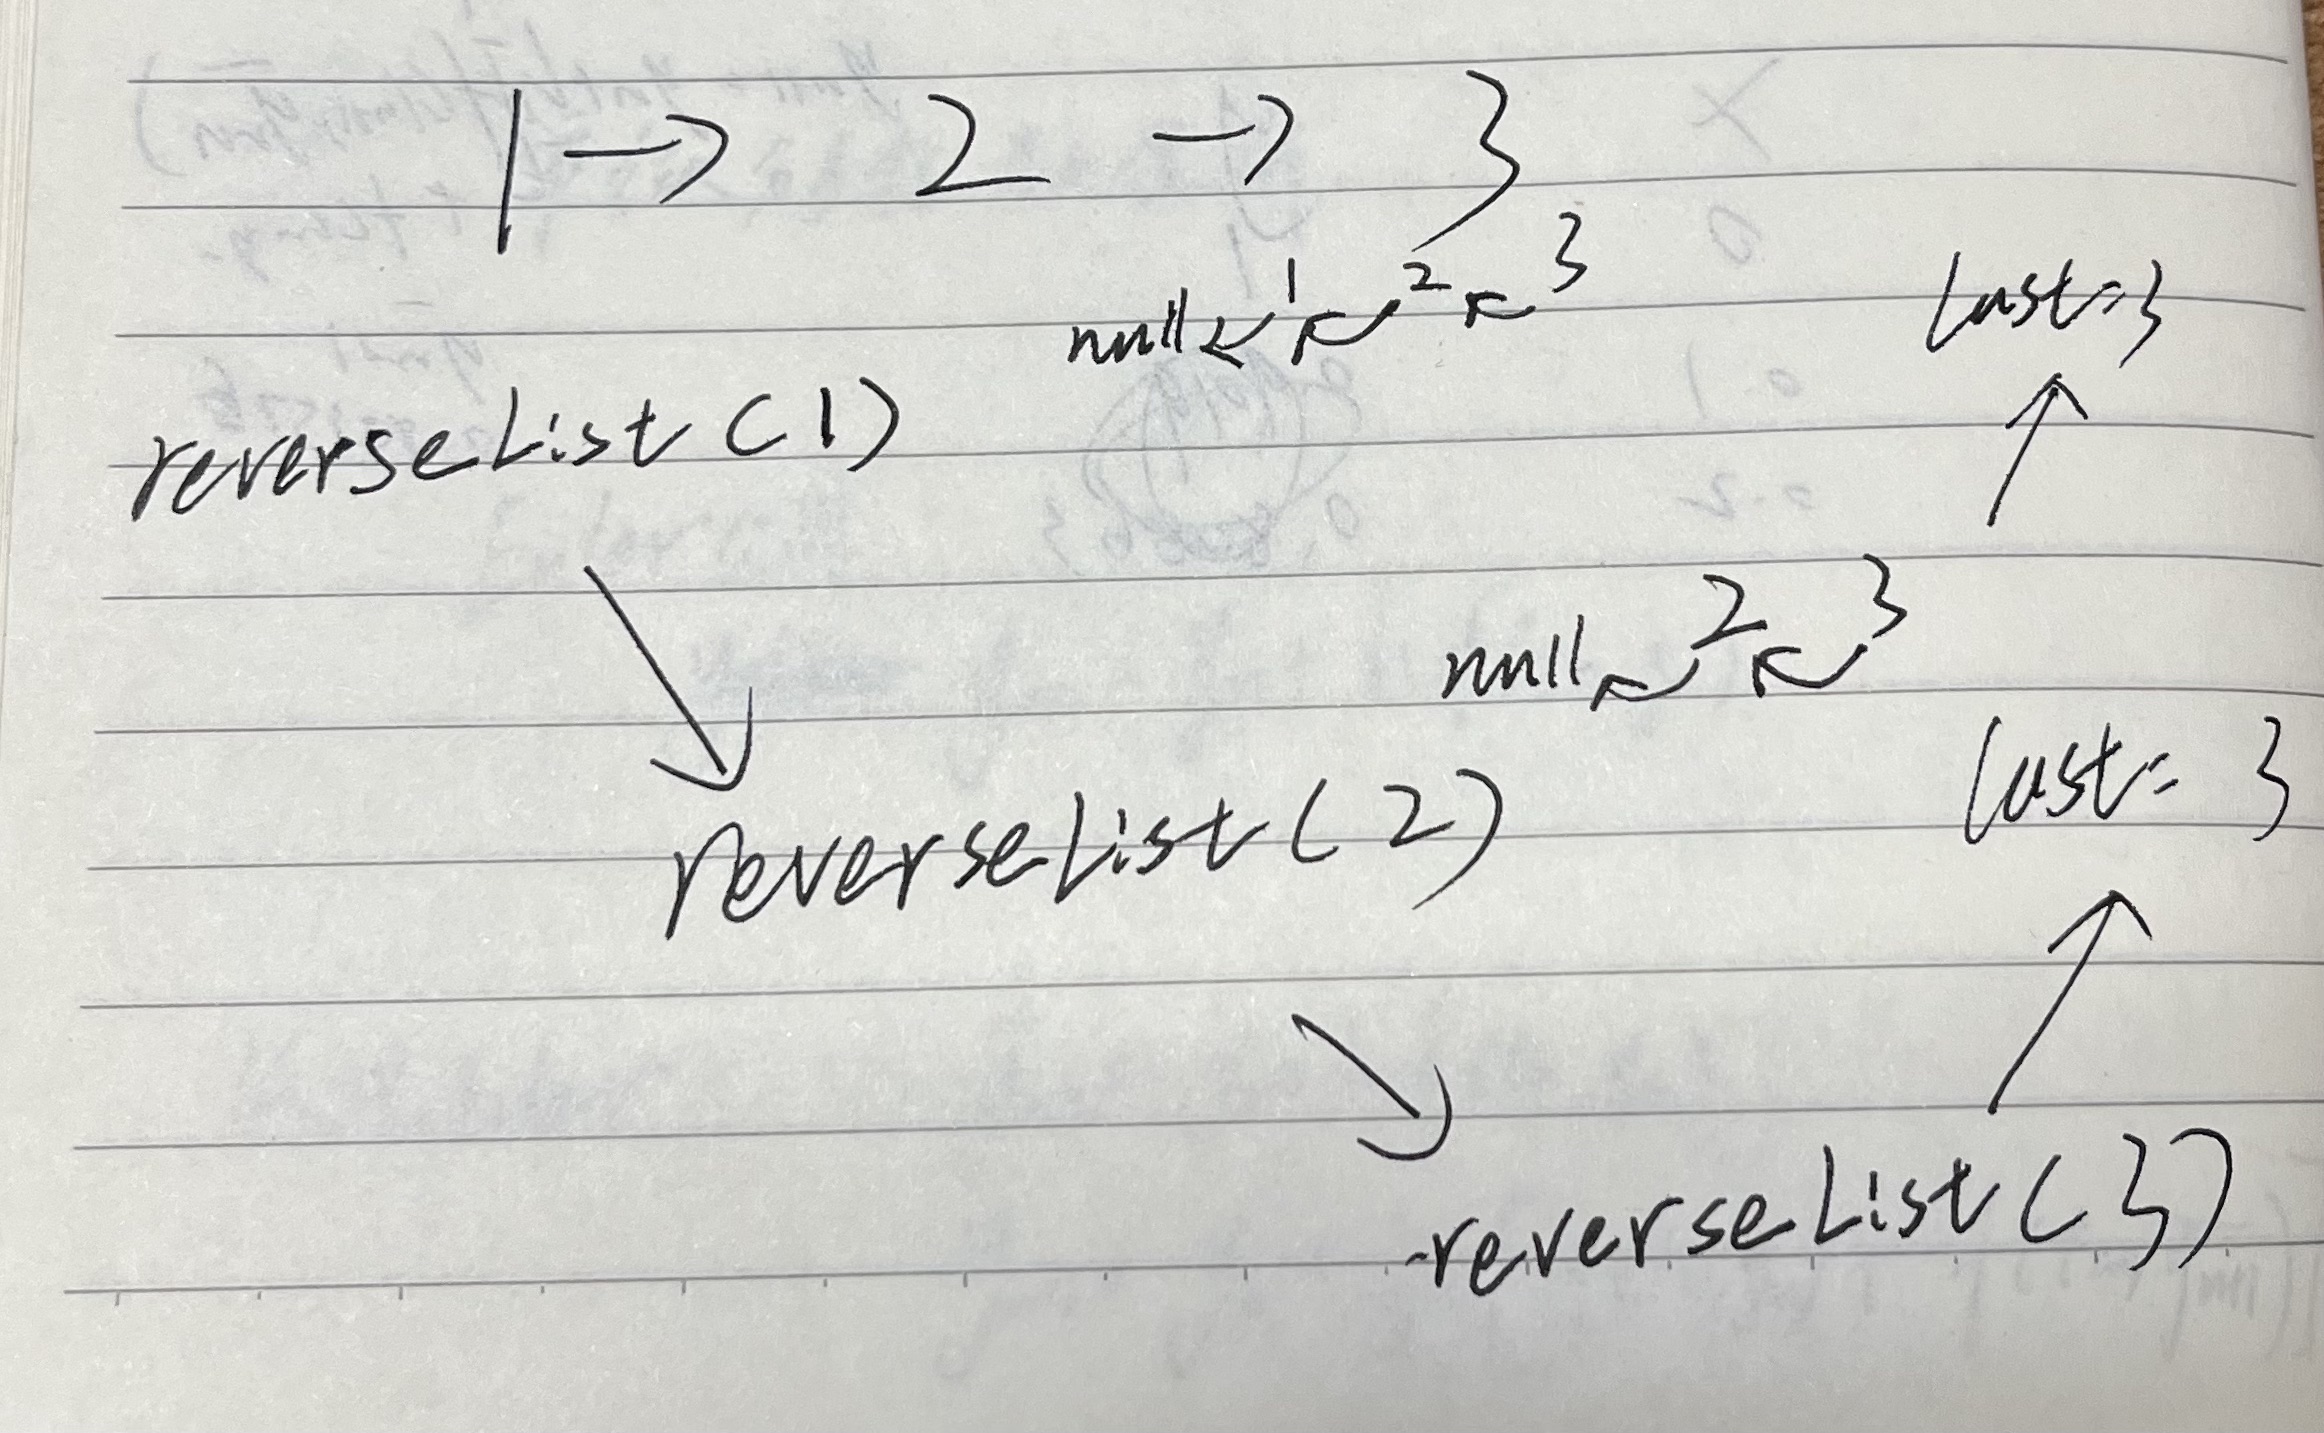 1 → 2 → 3
null ↙ 1 ↖ 2 ↖ 3
last=3
reverseList(1)
null ↖ 2 ↖ 3
last= 3
reverseList(2)
reverseList(3)